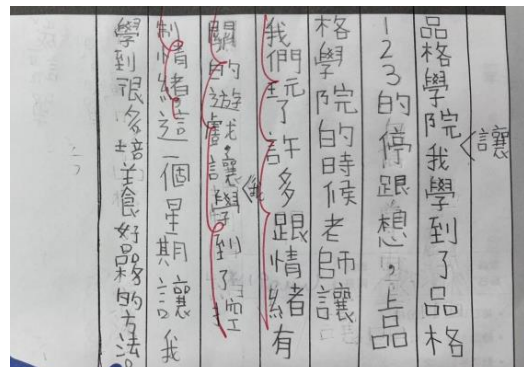 品格學院讓我學到了品格
123的停跟想，上品
格學院的時候老師讓
我們玩了許多跟情緒有
關的遊戲，讓我學到了控
制情緒。這一個星期讓我
學到很多培美食好品格的方法。